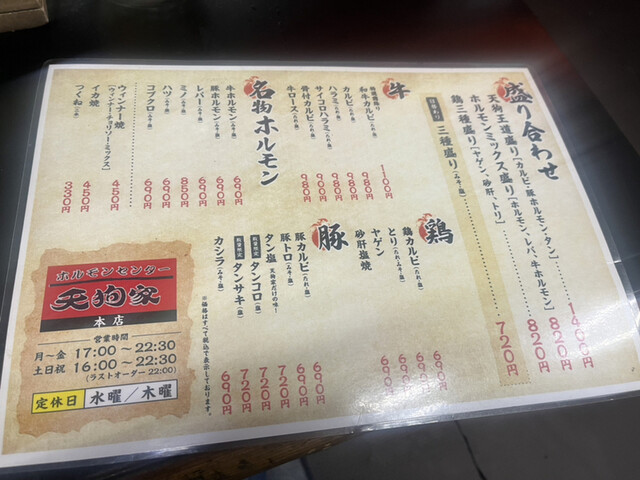 盛り合わせ
天狗王道盛り[カルビ・豚ホルモン・タン] 1400円
ホルモンミックス盛り[ホルモン、レバ、牛ホルモン] 820円
鶏三種盛り[ヤゲン、砂肝、トリ] 820円
三種盛り(みそ・塩) 720円
牛
和牛カルビ(たれ・塩) 1100円
カルビ(たれ・塩) 980円
ハラミ(たれ・塩) 980円
サイコロハラミ(たれ・塩) 900円
骨付カルビ(たれ・塩) 980円
牛ロース(たれ・塩) 980円
名物ホルモン
牛ホルモン(みそ・塩) 690円
豚ホルモン(みそ・塩) 690円
レバー(みそ・塩) 690円
ミノ(みそ・塩) 850円
ハツ(みそ・塩) 690円
コブクロ(みそ・塩) 690円
ウィンナー焼 450円
[ウィンナー・チョリソーミックス]
イカ焼 450円
つくね(一本) 330円
鶏
鶏カルビ(たれ・塩) 690円
とり(たれ・みそ・塩) 690円
ヤゲン 690円
砂肝塩焼 690円
豚
豚カルビ(たれ・塩) 690円
豚トロ(みそ・塩) 690円
タン塩 天狗家だけの味〜 720円
数量限定 タンコロ(塩) 720円
数量限定 タンサキ(塩) 720円
カシラ(みそ・塩) 690円
※価格はすべて税込で表示しております。
ホルモンセンター
天狗家
本店
営業時間
月〜金 17:00〜22:30
土日祝 16:00〜22:30
(ラストオーダー 22:00)
定休日 水曜/木曜